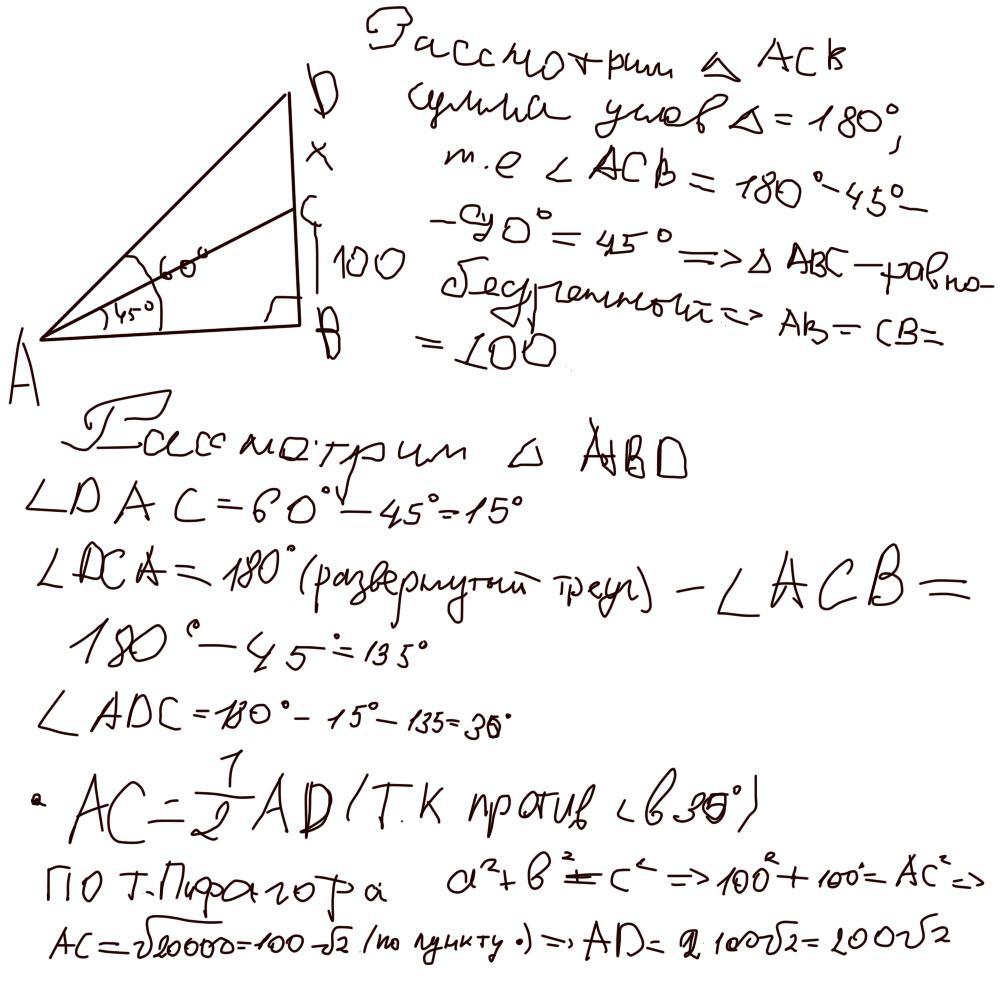 Рассмотрим △ ACB
сумма углов △ = 180°,
т.е ∠ ACB = 180° - 45° -
- 90° = 45° => △ ABC - равно-
бедренный => AB = CB =
= 100
D
x
C
100
60°
45°
A
B
Рассмотрим △ ABD
∠DAC = 60° - 45° = 15°
∠DCA = 180° (развернутый треуг) - ∠ACB =
180° - 45° = 135°
∠ADC = 180° - 15° - 135 = 30°
• AC = 1/2 AD (Т.К против < в 30°)
ПО т.Пифагора a² + b² = c² => 100² + 100² = AC² =>
AC = √20000 = 100√2 (по пункту •) => AD = 2 100√2 = 200√2